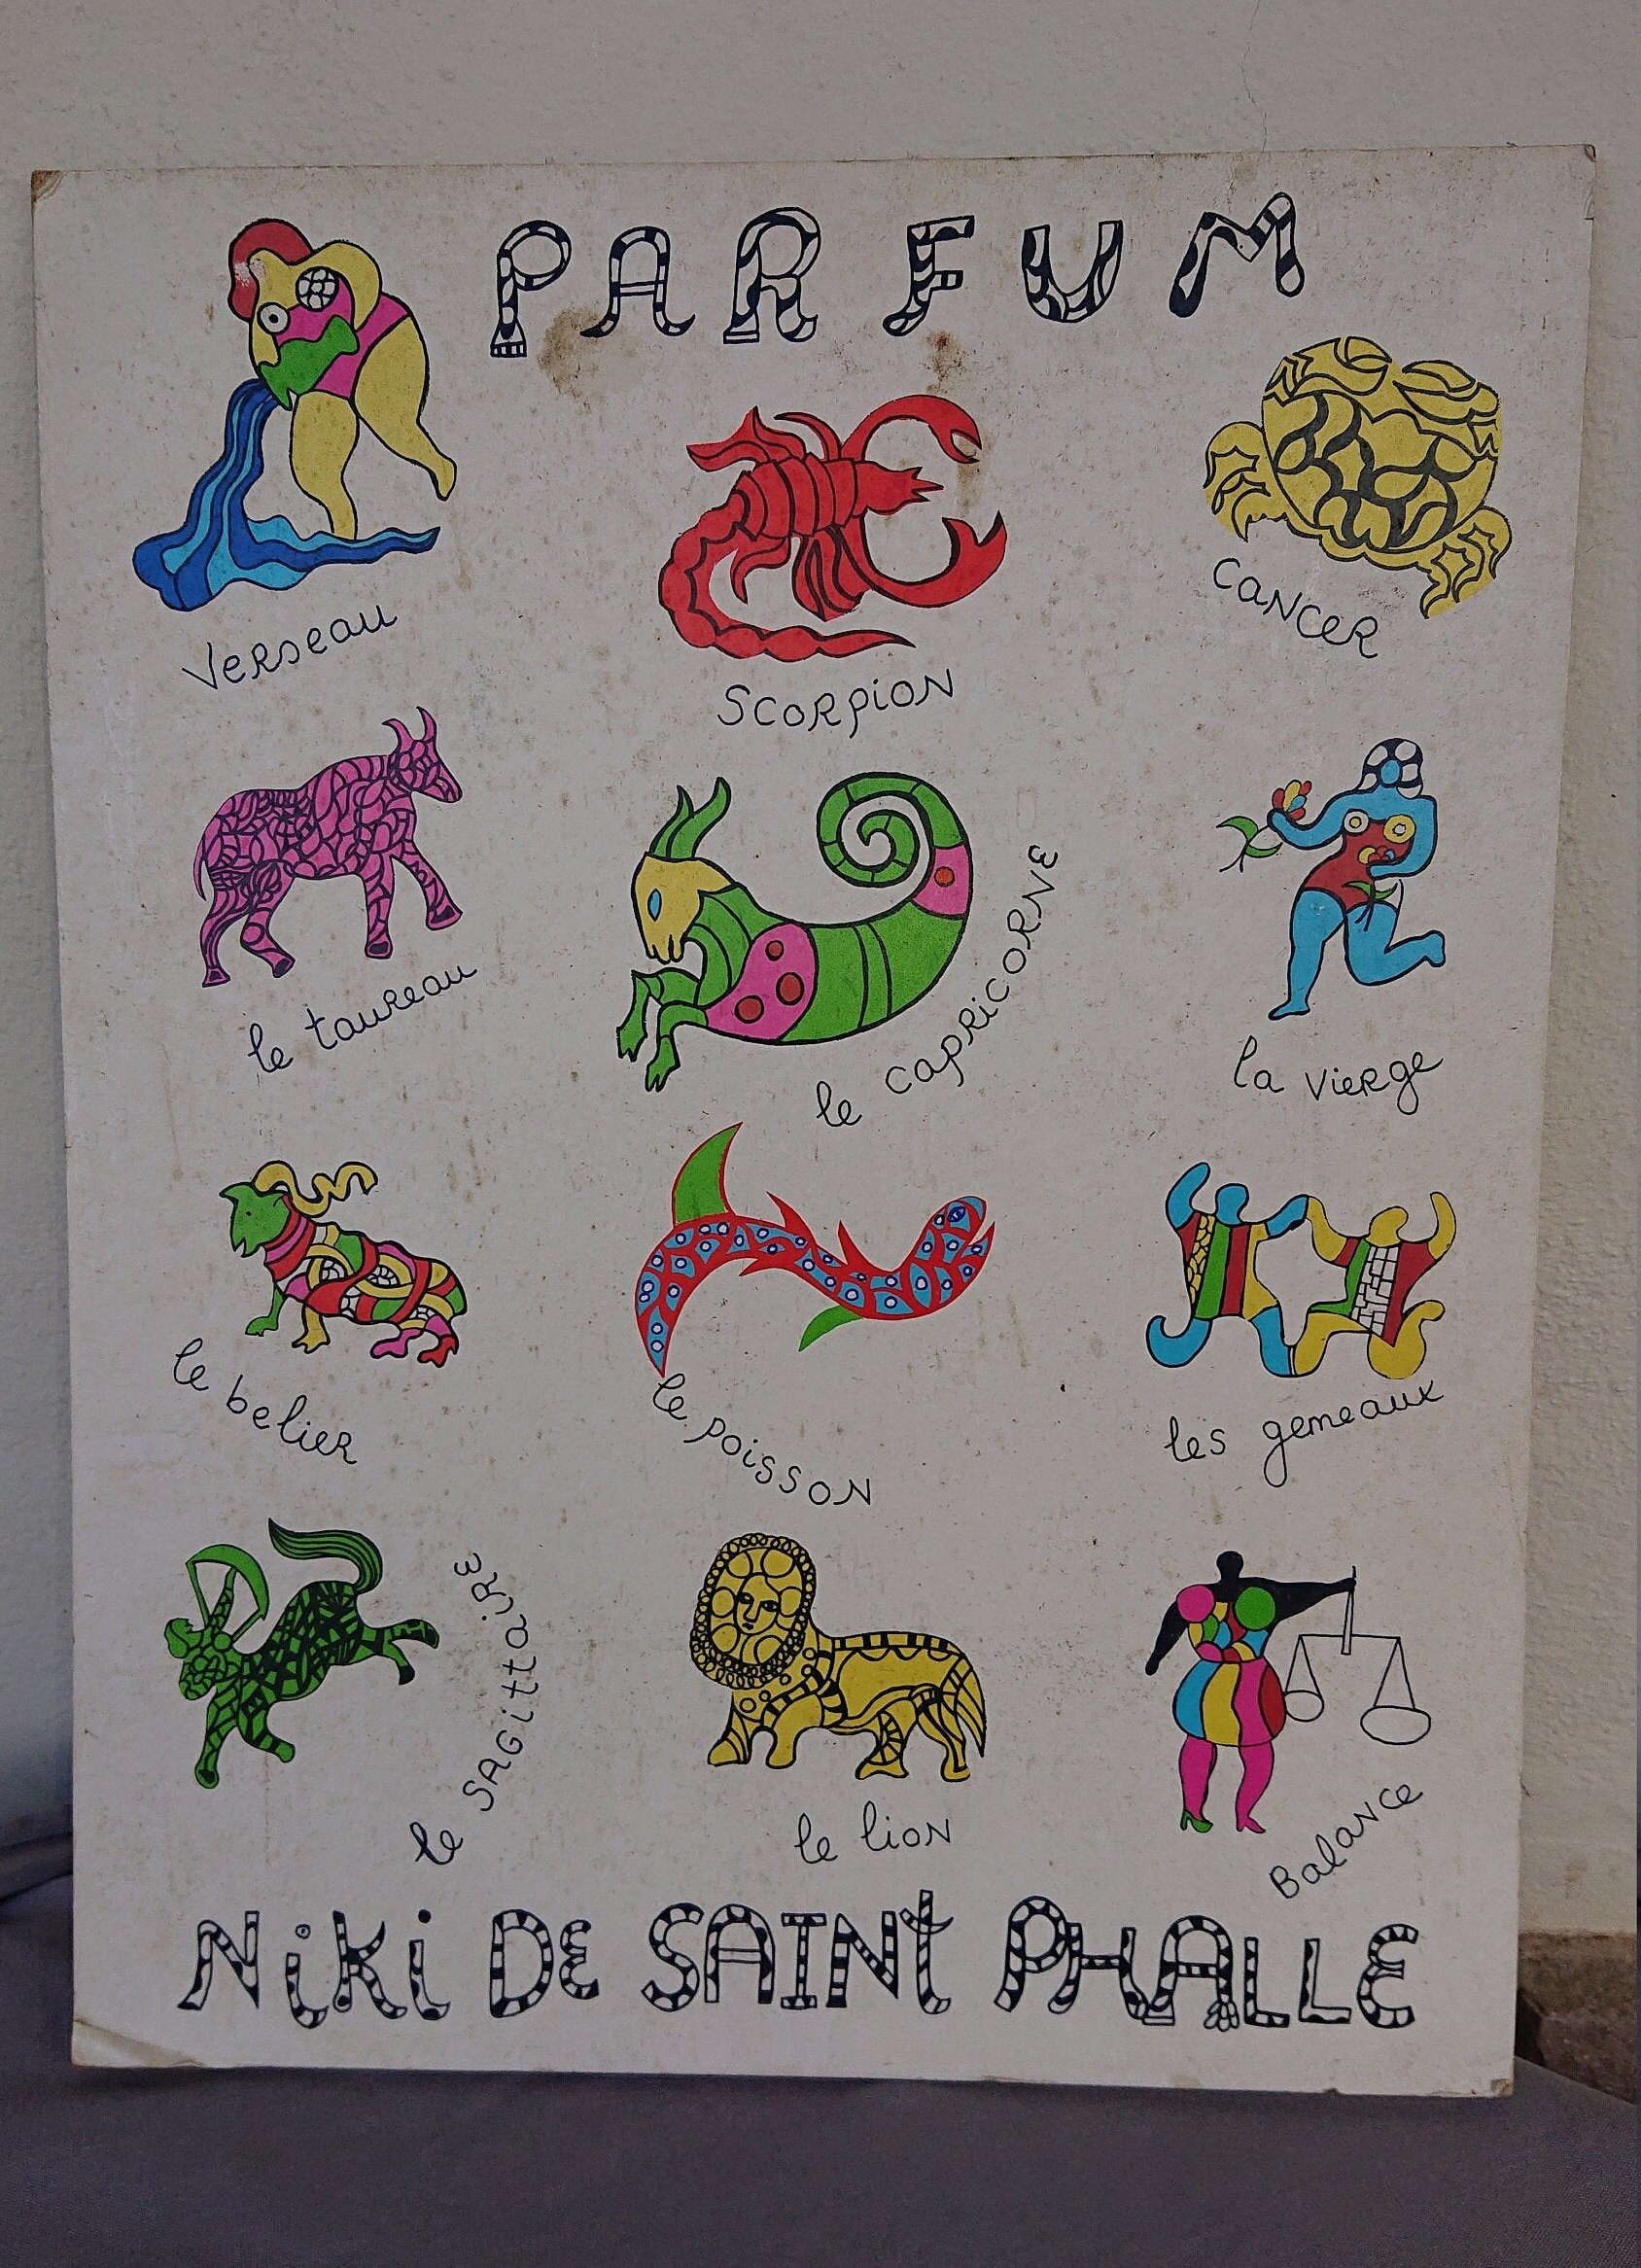 PARFUM
Verseau
Scorpion
Cancer
le taureau
le capricorne
la vierge
le belier
le poisson
les gemeaux
le sagittaire
le lion
Balance
NiKi De SAINt PHALLE